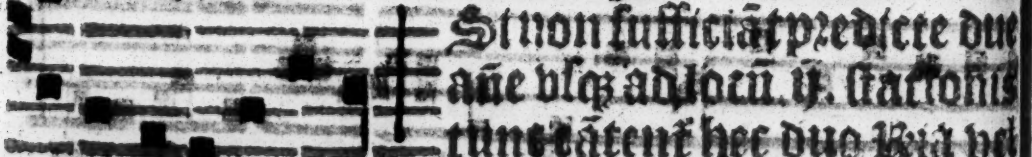 Si non sufficiāt predicte due
añe vsqꝫ ad locū .ij. stationis
tunc cātent᷑ hec duo Rͥa vel